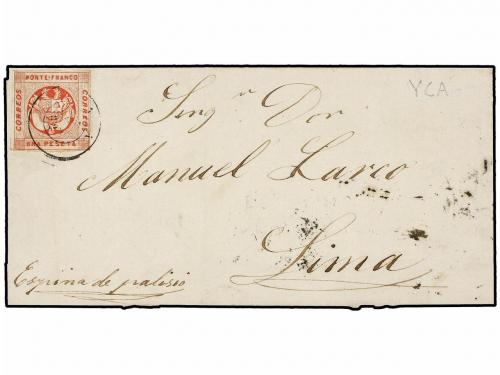 PORTE FRANCO
CORREOS
CORREOS
UNA PESETA
YCA
Señor Don
Manuel Larco
Lima
Esquina de palisio